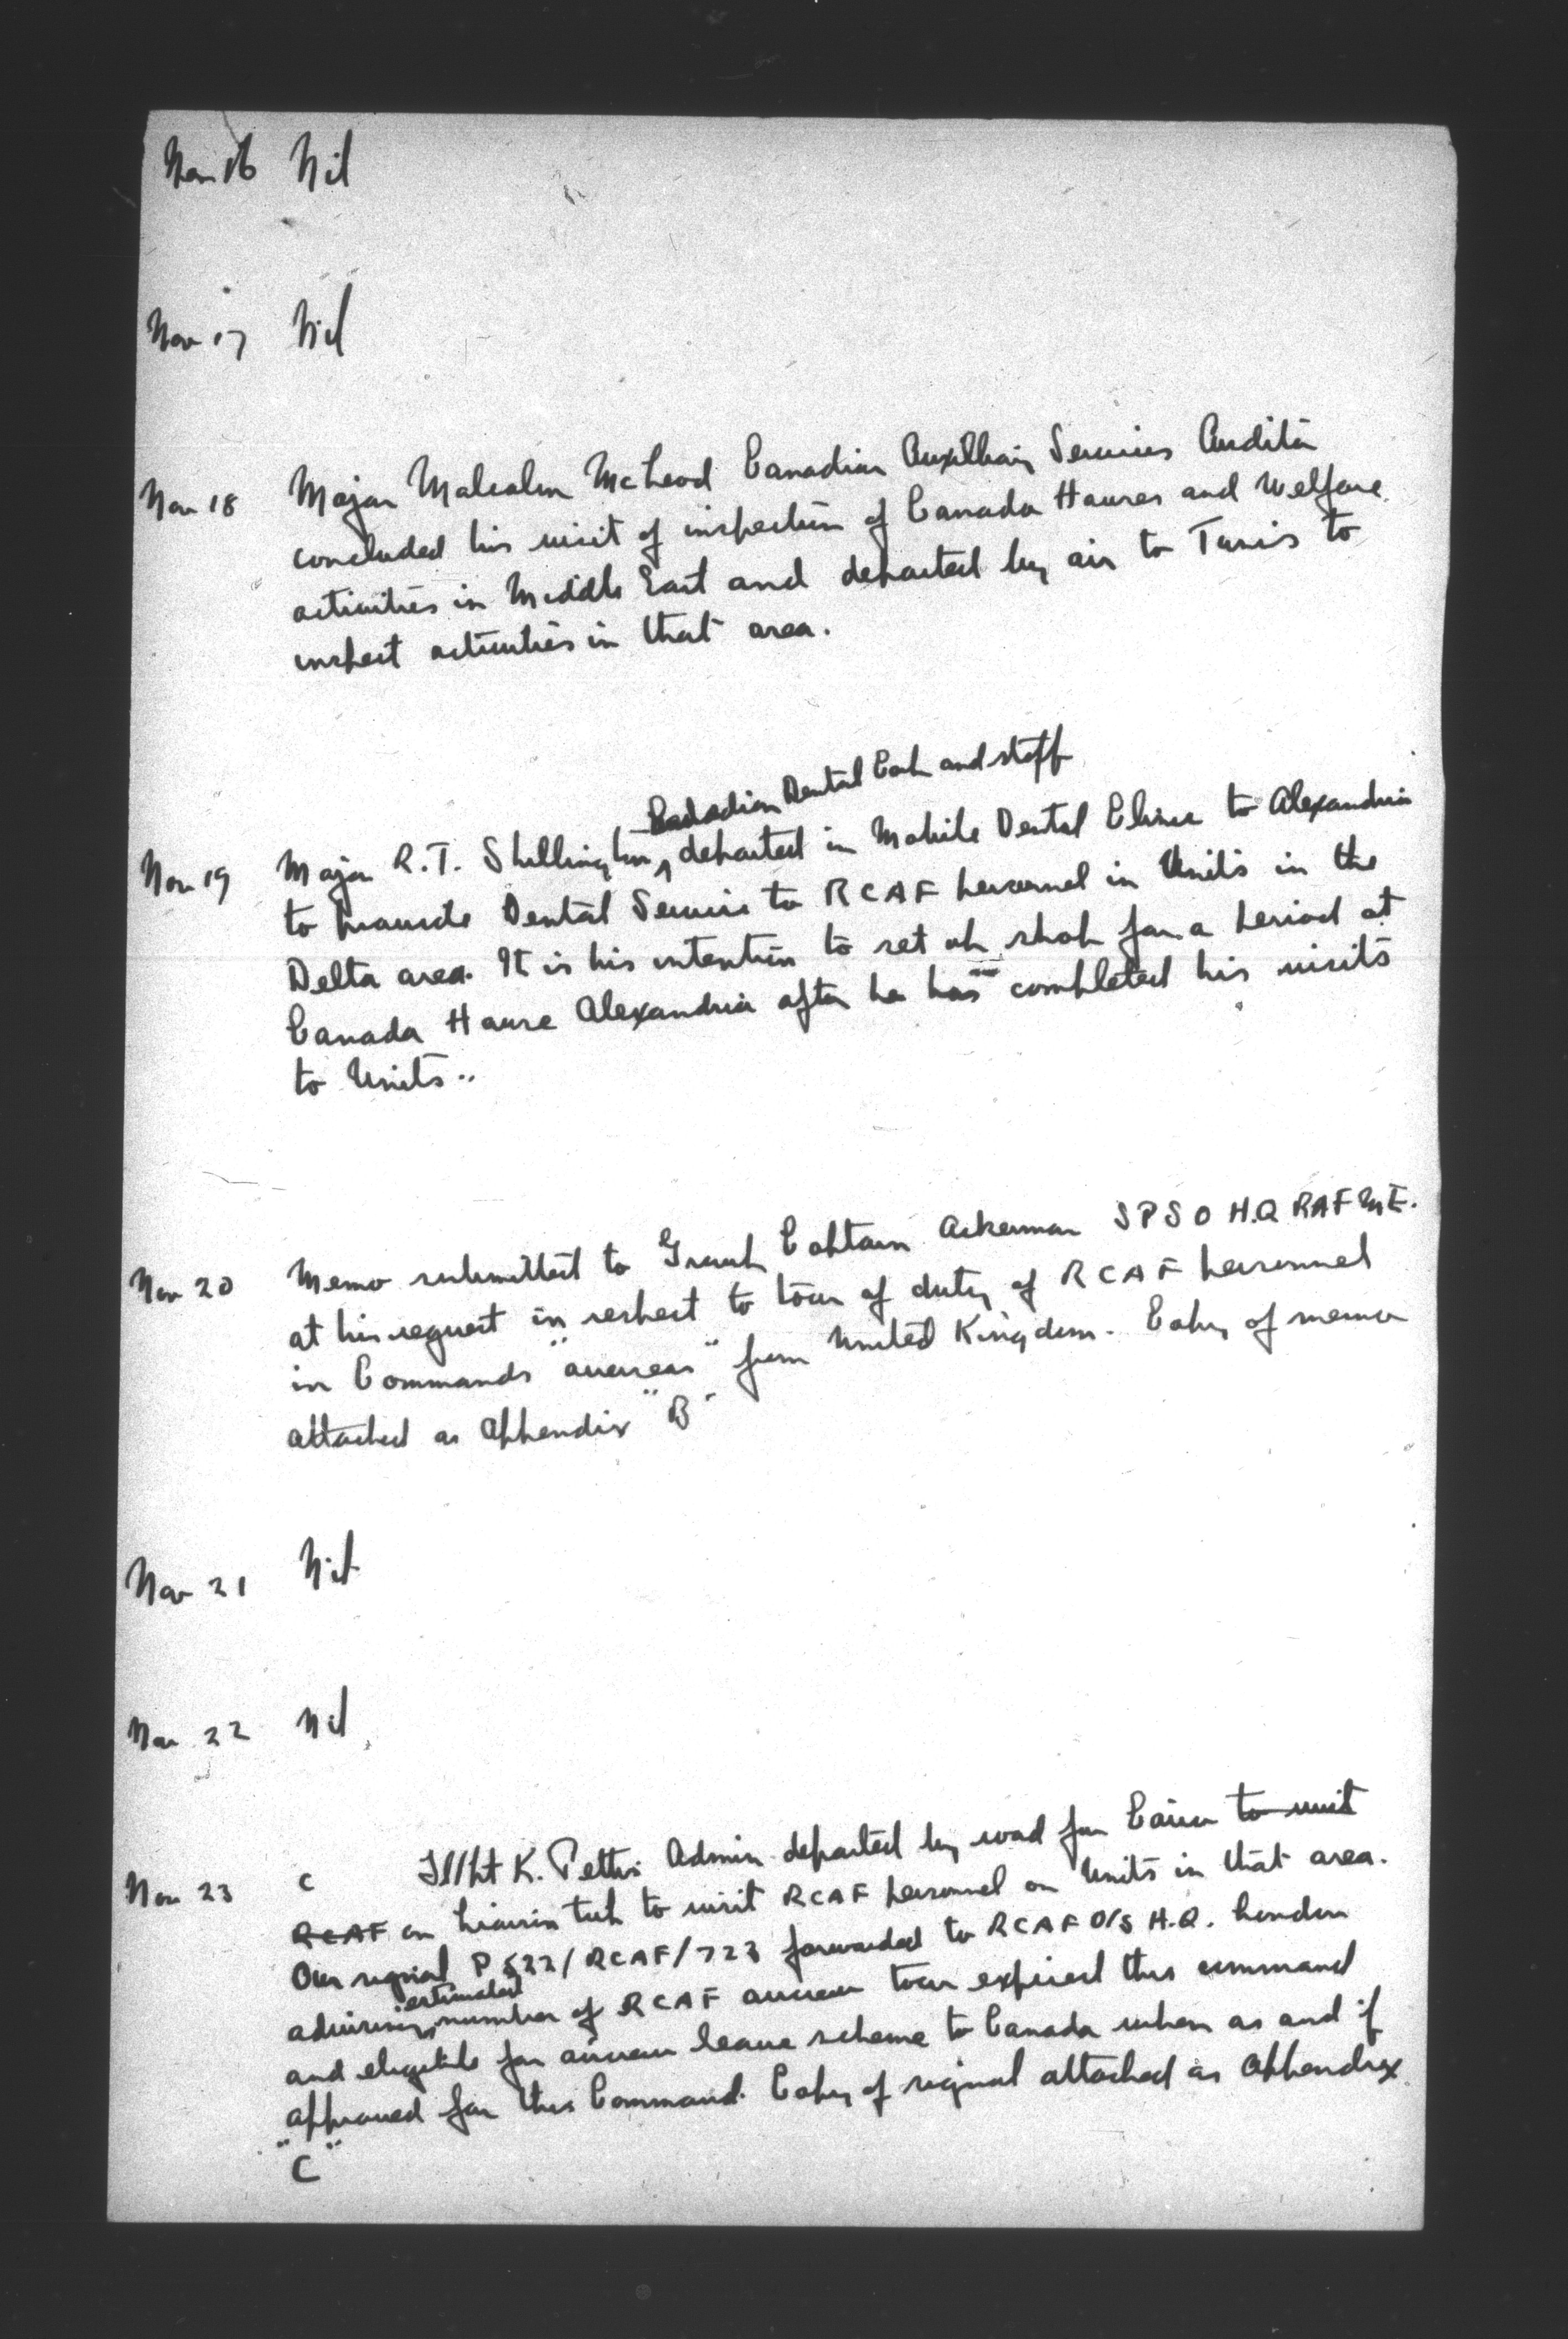 Nov 16 Nil
Nov 17 Nil
Nov 18 Major Malcolm McLeod Canadian Auxilliary Services Auditor
concluded his visit of inspection of Canada Houses and Welfare
activities in Middle East and departed by air to Tunis to
inspect activities in that area.
Canadian Dental Corp and staff
Nov 19 Major R.T. Shillington, departed in Mobile Dental Clinic to Alexandria
to provide Dental Service to RCAF personnel in Units in the
Delta area. It is his intention to set up shop for a period at
Canada House Alexandria after he has completed his visits
to Units..
Nov 20 Memo submitted to Group Captain Ackerman SPSO H.Q RAF ME.
at his request in respect to tour of duty of RCAF personnel
in Commands "overseas" from United Kingdom. Copy of memo
attached as Appendix "B"
Nov 21 Nil
Nov 22 Nil
Nov 23 C Fl/Lt K. Pettri Admin departed by road for Cairo to visit
RCAF on liaison trip to visit RCAF personnel on Units in that area.
Our signal P522/RCAF/723 forwarded to RCAF O/S H.Q. London
estimated
advising number of RCAF aircrew tour expired this command
and eligible for aircrew leave scheme to Canada when as and if
approved for this Command. Copy of signal attached as Appendix
"C"